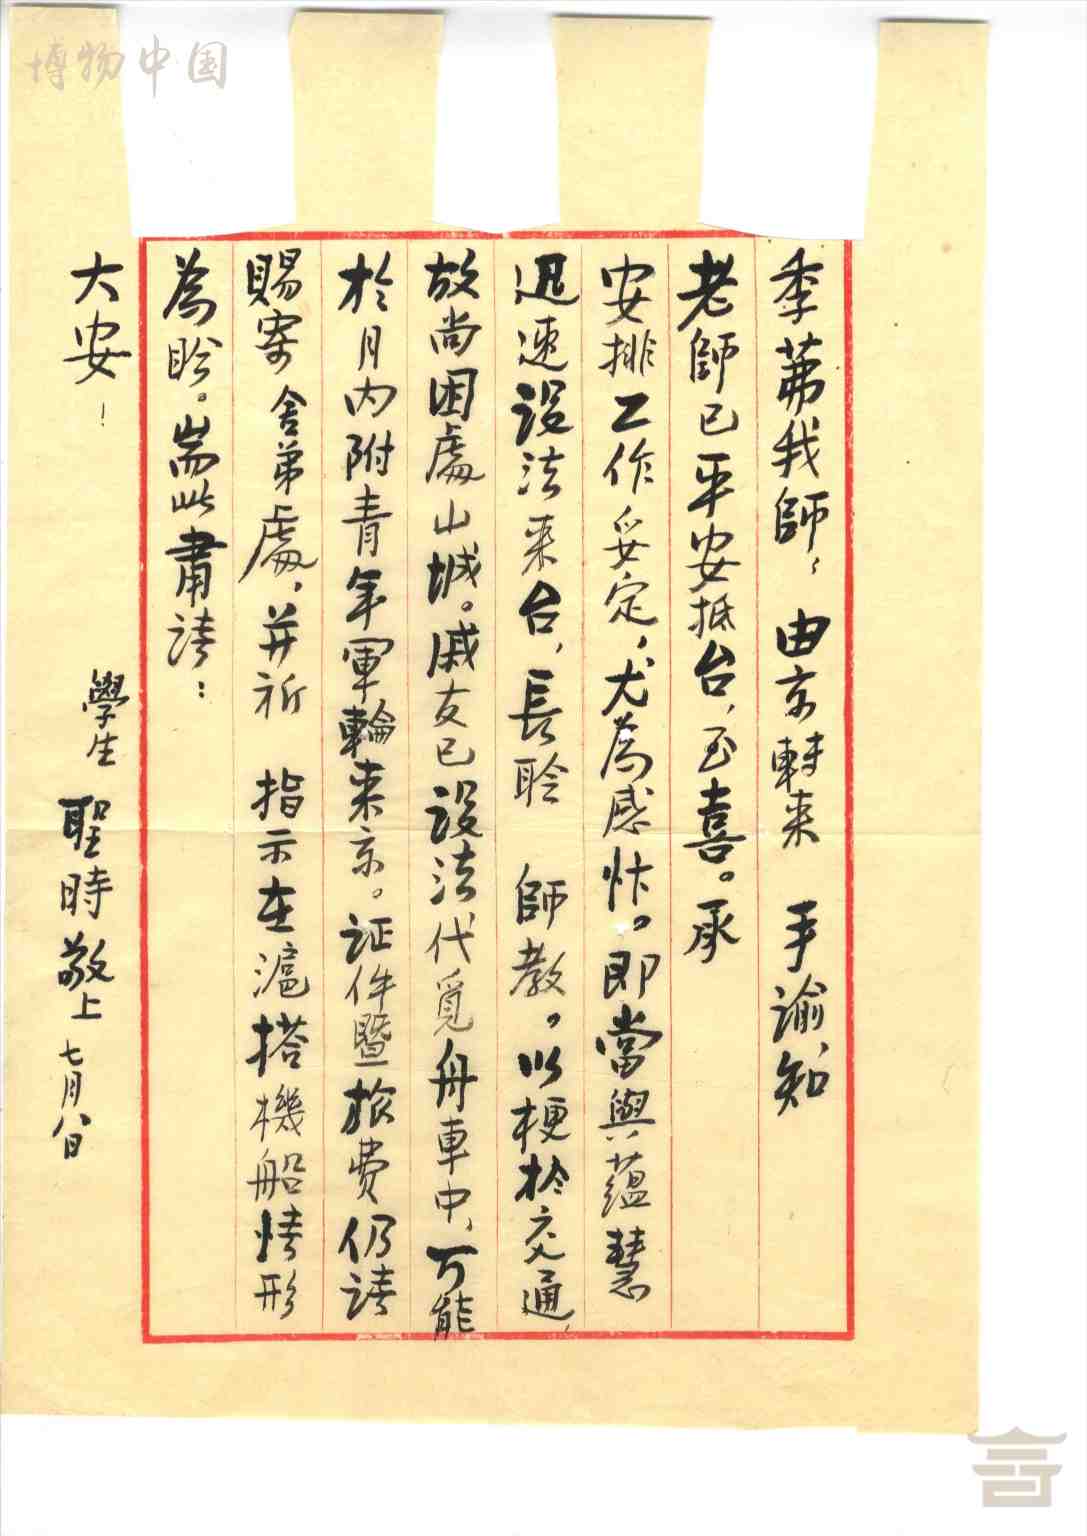 博物中国
季茀我師：由京轉来　手諭，知
老師已平安抵台，至喜。承
安排工作妥定，尤為感忭。即當與蘊慧
迅速設法来台，長聆　師教。以梗於交通，
故尚困處山城。戚友已設法代覓舟車中，可能
於月内附青年軍輪来京。証件暨旅费仍請
賜寄舍弟處，并祈　指示在滬搭機船情形
為盼。耑此肅請：
大安！
學生　聖時敬上　七月八日